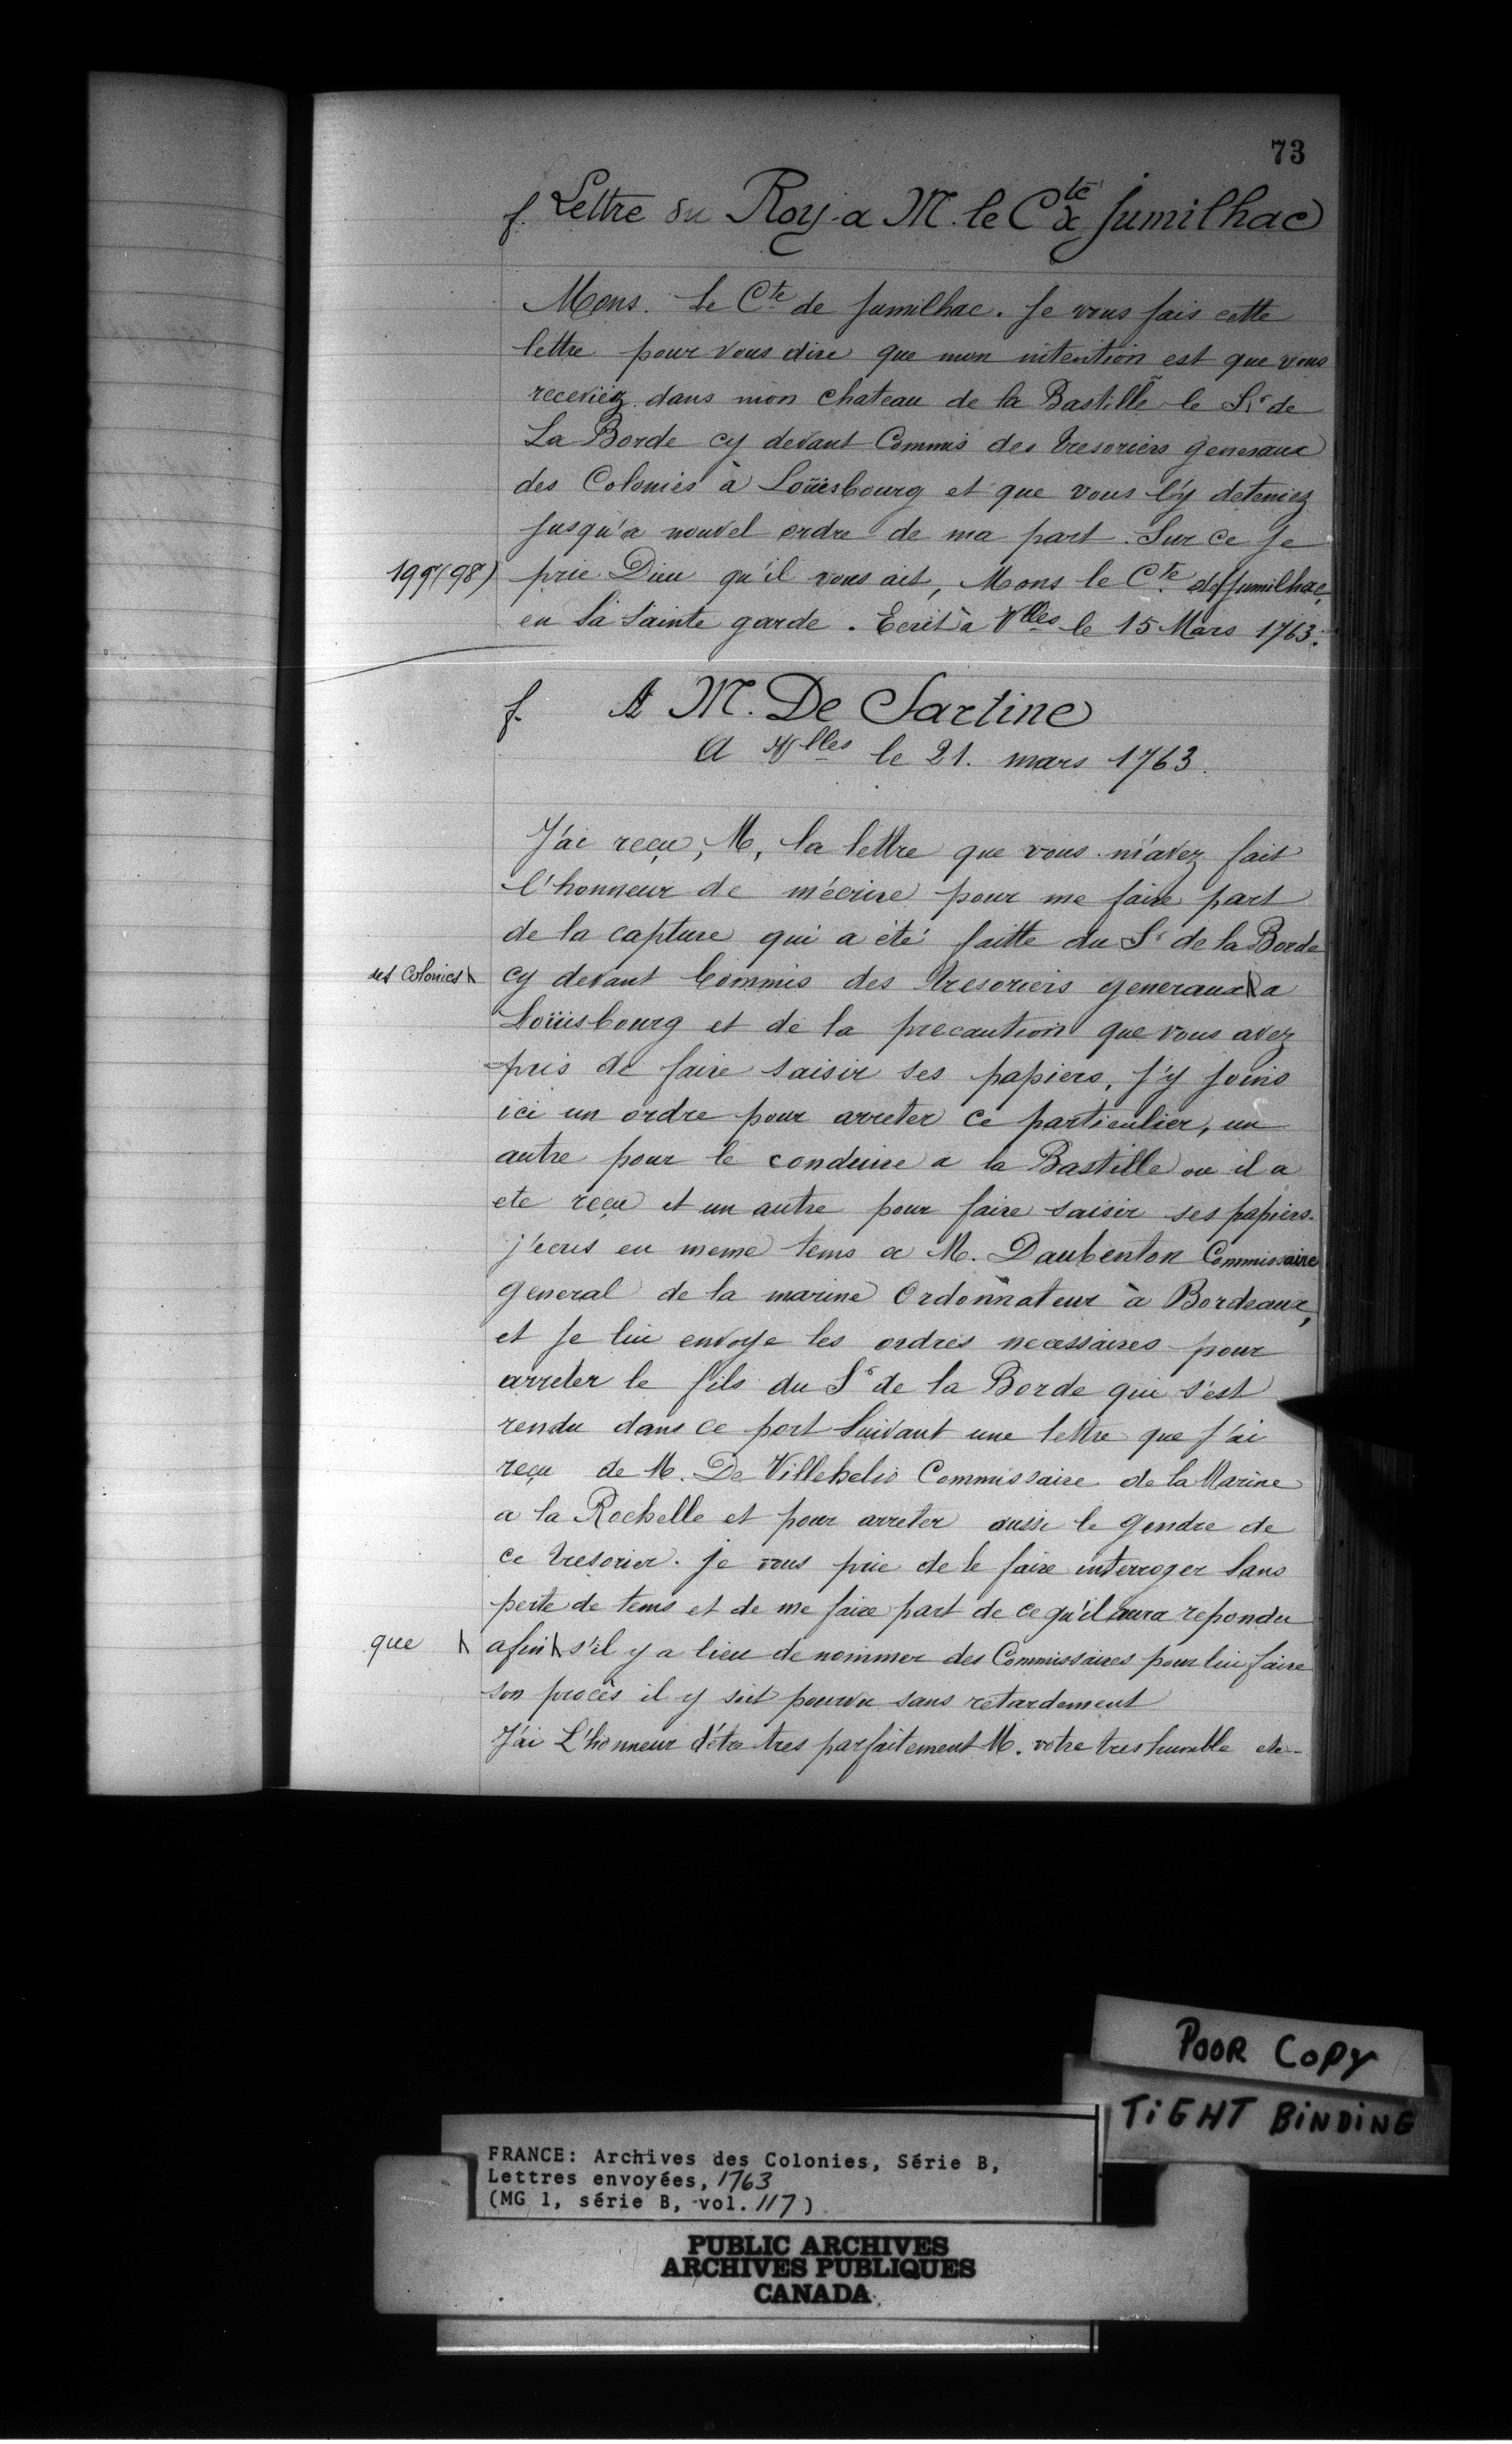 73
f. Lettre du Roy a M. le Cte de Jumilhac
Mons. Le Cte de Jumilhac. Je vous fais cette
lettre pour vous dire que mon intention est que vous
receviéz dans mon chateau de la Bastille le Sr de
La Borde cy devant Commis des tresoriers generaux
des Colonies à Loüisbourg et que vous l'y deteniez
jusqu'a nouvel ordre de ma part. Sur ce je
prie Dieu qu'il vous ait, Mons le Cte de Jumilhac,
en Sa Sainte garde. Ecrit à Vlles le 15 Mars 1763.
f. A M. De Sartine
A Vlles le 21. mars 1763.
J'ai reçu, M, la lettre que vous m'avez fait
l'honneur de m'écrire pour me faire part
de la capture qui a été faitte du Sr de la Borde
des Colonies
cy devant Commis des tresoriers generaux a
Loüisbourg et de la precaution que vous avez
pris de faire saisir ses papiers, j'y joins
ici un ordre pour arreter ce particulier, un
autre pour le conduire a la Bastille ou il a
ete reçu et un autre pour faire saisir ses papiers.
j'ecris en meme tems a M. Daubenton Commissaire
general de la marine Ordonnateur à Bordeaux,
et je lui envoye les ordres necessaires pour
arreter le fils du Sr de la Borde qui s'est
rendu dans ce port Suivant une lettre que j'ai
reçu de M. De Villehelio Commissaire de la Marine
a la Rochelle et pour arreter aussi le gendre de
ce tresorier. je vous prie de le faire interroger Sans
perte de tems et de me faire part de ce qu'il aura repondu
que
afin s'il y a lieu de nommer des Commissaires pour lui faire
son procès il y soit pourvu sans retardement
J'ai L'honneur d'être tres parfaitement M. votre tres humble etc-
POOR COPY
TIGHT BINDING
FRANCE: Archives des Colonies, Série B,
Lettres envoyées, 1763
(MG 1, série B, vol. 117)
PUBLIC ARCHIVES
ARCHIVES PUBLIQUES
CANADA